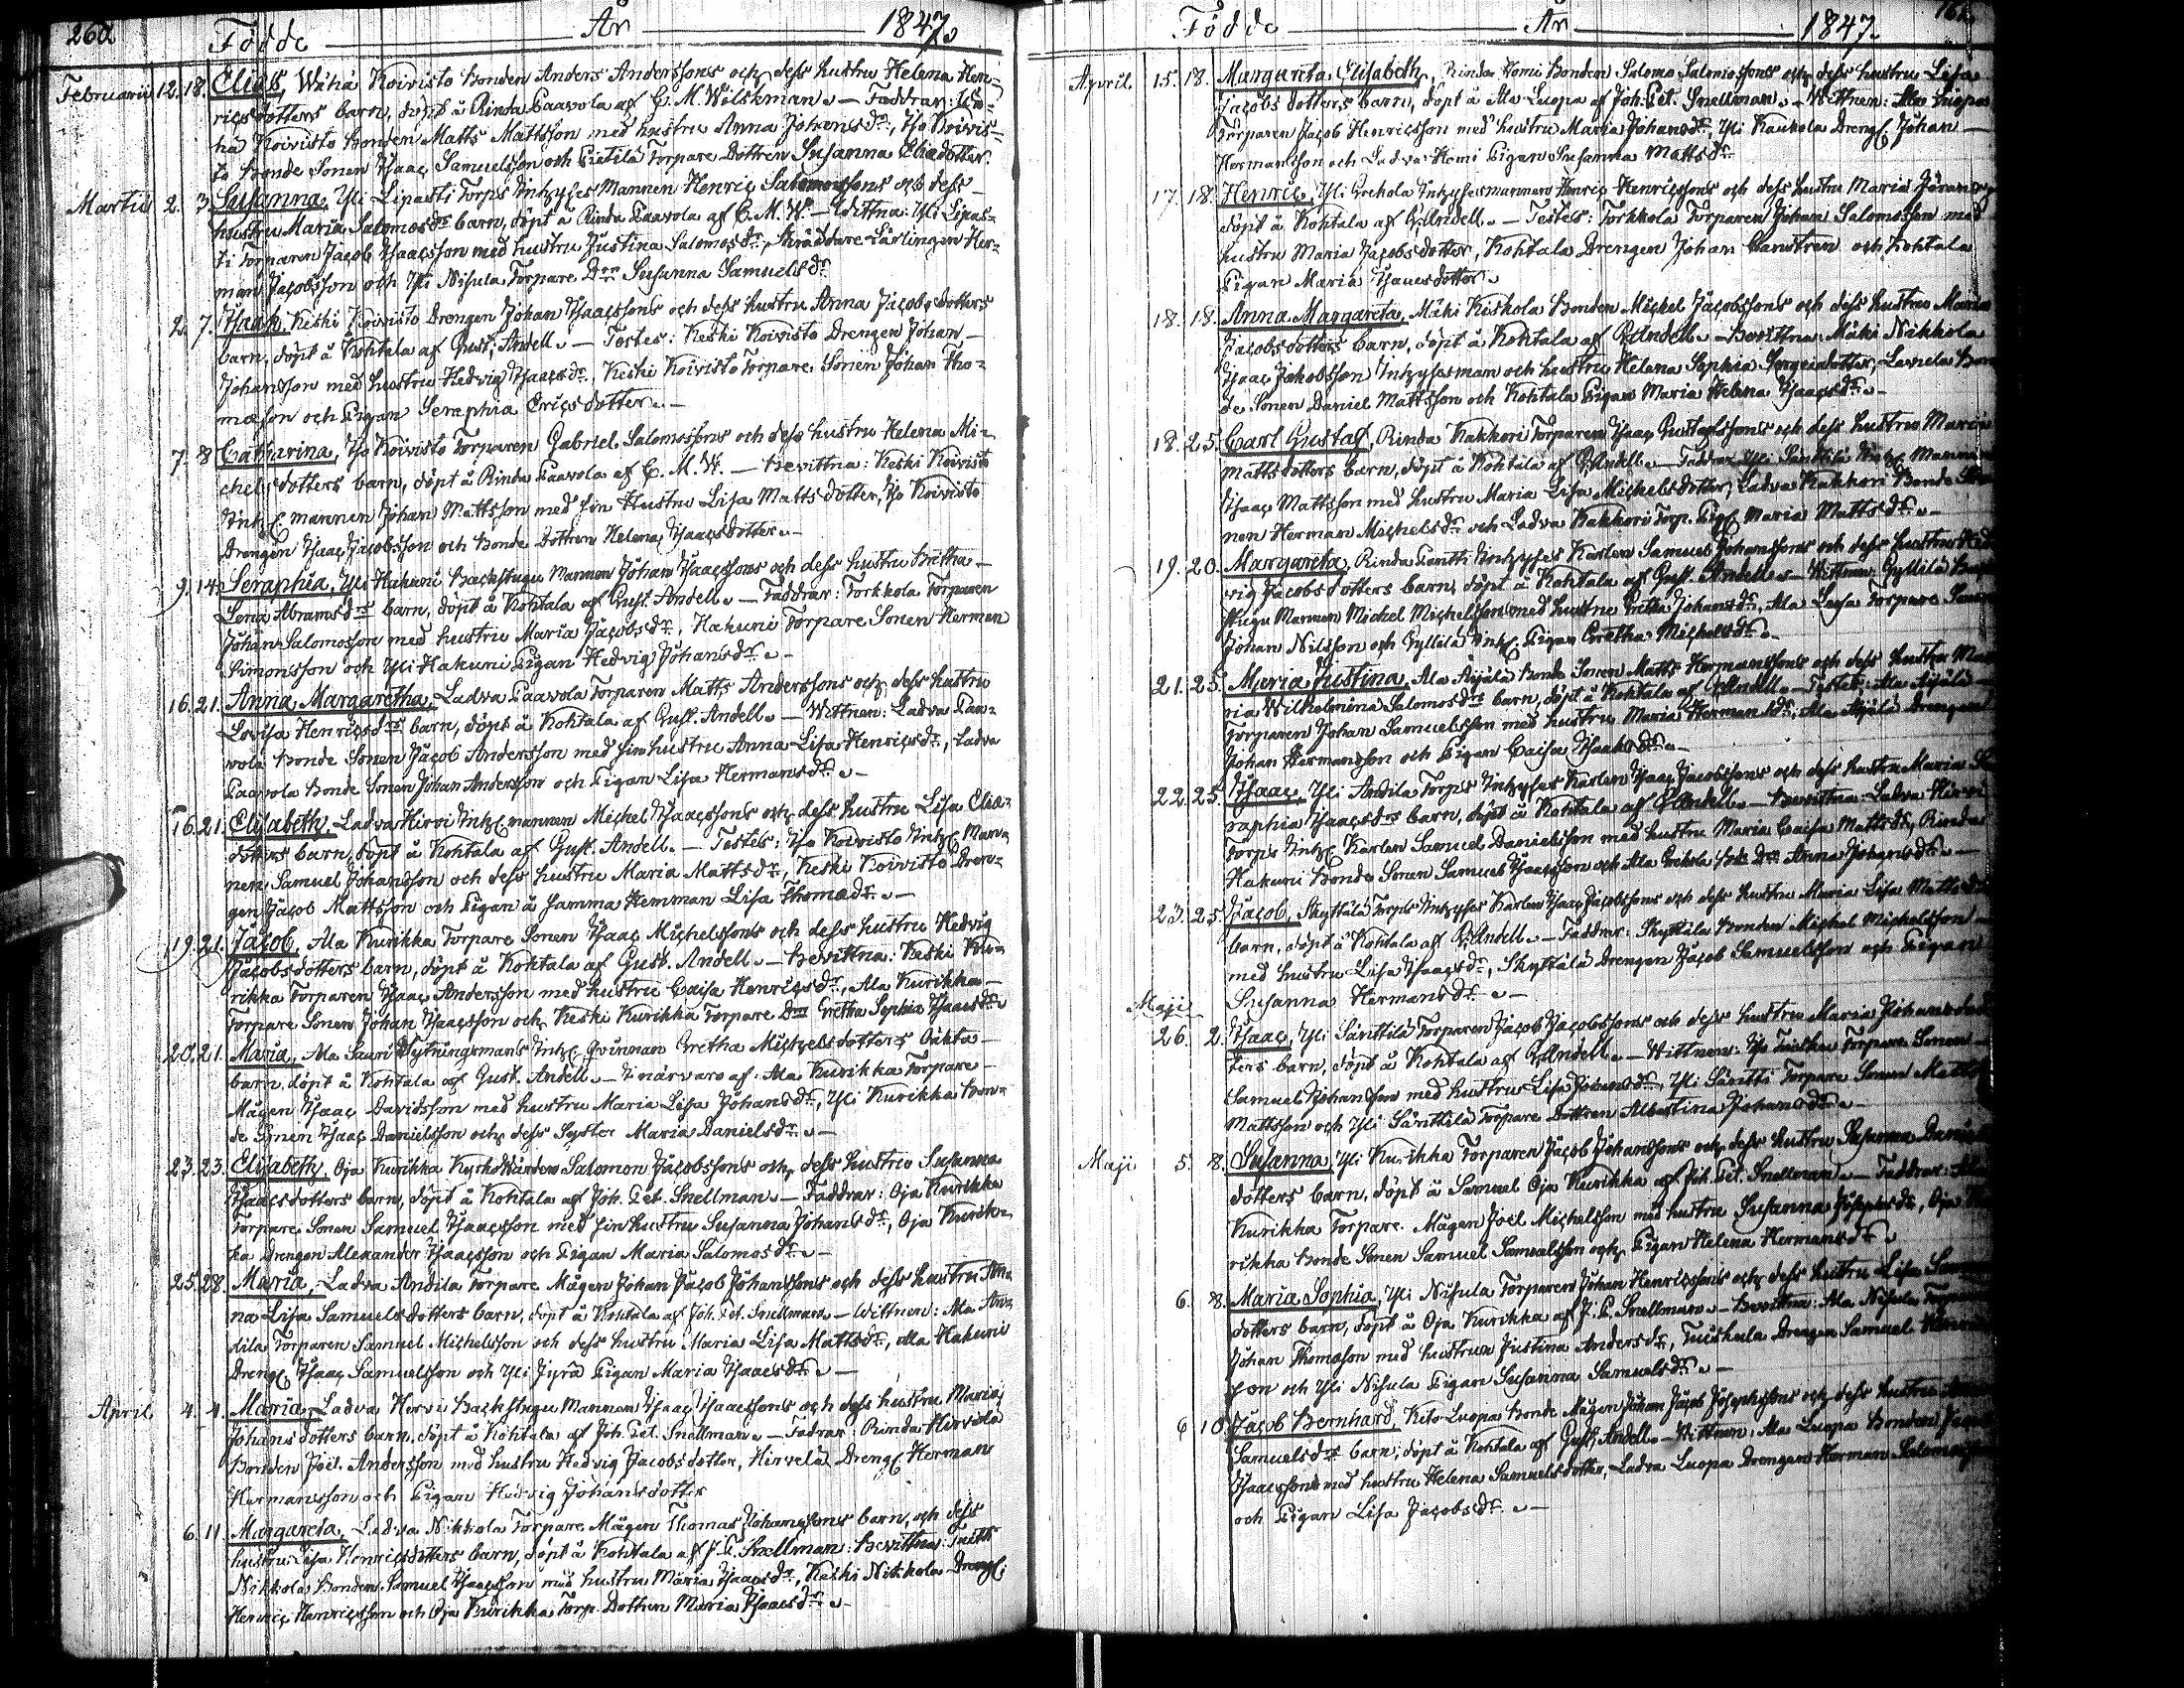 260 Födde År 1847.
Februarii 12. 18. Elias, Wähä Koivisto bonden Anders Anderssons och dess hustru Helena Hen-
ricsdotters barn, döpt å Rinda Paavola af C. M. Wilskman. — Faddrar: Wä-
hä Koivisto bonden Matts Mattsson med hustru Anna Johansdr, Iso Koivis-
to bonde Sonen Isaac Samuelsson och Pietilä Torpare Dottren Susanna Eliædotter.
Martii 2. 3. Susanna, Yli Lipasti Torps Inhyses Mannen Henric Salomossons och dess
hustru Maria Salomosdrs barn, döpt å Rinda Paavola af C. M. W. — Wittna: Yli Lipas-
ti Torparen Jacob Isaacsson med hustru Justina Salomosdr, Skräddare Lärlingen Her-
man Jacobsson och Yli Nisula Torpare Drn Susanna Samuelsdr
2. 7. Isaak, Keski Koivisto Drengen Johan Isaacssons och dess hustru Anna Jacobsdotters
barn, döpt å Kohtala af Gust. Andell. — Testes: Keski Koivisto Drengen Johan
Johansson med hustru Hedvig Isaacsdr, Keski Koivisto Torpare Sonen Johan Tho-
mæson och Pigan Seraphia Ericsdotter. —
7. 8. Catharina, Iso Koivisto Torparen Gabriel Salomossons och dess hustru Helena Mi-
chelsdotters barn, döpt å Rinda Paavola af C. M. W. — Bevittna: Keski Koivisto
Inh. mannen Johan Mattsson med sin Hustru Lisa Mattsdotter, Iso Koivisto
Drengen Isaac Jacobsson och bonde Dottren Helena Isaacsdotter. —
9. 14. Seraphia, Yli Hakuni Backstugu Mannen Johan Isaacssons och dess hustru Bretha
Lena Abramsdrs barn, döpt å Kohtala af Gust. Andell. — Faddrar: Torkkola Torparen
Johan Salomosson med hustru Maria Jacobsdr, Hakuni Torpare Sonen Herman
Simonsson och Yli Hakuni Pigan Hedvig Johansdr. —
16. 21. Anna Margaretha, Ladva Paavola Torparen Matts Anderssons och dess hustru
Lovisa Henricsdrs barn, döpt å Kohtala af Gust. Andell. — Wittnen: Ladva Paa-
vola bonde Sonen Jacob Andersson med sin hustru Anna Lisa Henricsdr, Ladva
Paavola bonde Sonen Johan Andersson och Pigan Lisa Hermansdr. —
16. 21. Elisabeth, Ladva Hirvi Inh. mannen Michel Isaacssons och dess hustru Lisa Eliæ-
dotters barn, döpt å Kohtala af Gust. Andell. — Testes: Iso Koivisto Inh. Man-
nen Samuel Johansson och dess hustru Maria Mattsdr, Keski Koivisto Dren-
gen Jacob Mattsson och Pigan å samma Hemman Lisa Thomædr. —
19. 21. Jacob, Ala Kurikka Torpare Sonen Isaac Michelssons och dess hustru Hedvig
Jacobsdotters barn, döpt å Kohtala af Gust. Andell. — Bevittna: Keski Ku-
rikka Torparen Isaac Andersson med hustru Caisa Henricsdr, Ala Kurikka
Torpare Sonen Johan Isaacsson och Keski Kurikka Torpare Drn Gretha Sophia Isaacsdr.
20. 21. Maria, Ala Sauri Inh. Qvinnan Gretha Michelsdotters Oäkta
barn, döpt å Kohtala af Gust. Andell. — I närvaro af: Ala Kurikka Torpare
Mågen Isaac Davidsson med hustru Maria Lisa Johansdr, Yli Kurikka bon-
de Sonen Isaac Danielsson och dess Syster Maria Danielsdr. —
23. 23. Elisabeth, Oja Kurikka Kyrko Wärden Salomon Jacobssons och dess hustru Susanna
Isaacsdotters barn, döpt å Kohtala af Joh. Pet. Snellman. — Faddrar: Oja Kurikka
Torpare Sonen Samuel Isaacsson med sin hustru Susanna Johansdr, Oja Kurik-
ka Drengen Alexander Isaacsson och Pigan Maria Salomosdr. —
25. 28. Maria, Ladva Andila Torpare Mågen Johan Jacob Johanssons och dess hustru An-
na Lisa Samuelsdotters barn, döpt å Kohtala af Joh. Pet. Snellman. — Wittnen: Ala An-
dila Torparen Samuel Michelsson och dess hustru Maria Lisa Mattsdr, Ala Hakuni
Dreng. Isaac Samuelsson och Yli Jyrä Pigan Maria Isaacsdr. —
April 4. 4. Maria, Ladva Hervi Backstugu Mannen Isaac Isaacssons och dess hustru Maria
Johansdotters barn, döpt å Kohtala af Joh. Pet. Snellman. — Fadrar: Rinda Hirvelä
Bonden Joël Andersson med hustru Hedvig Jacobsdotter, Hirvelä Dreng. Herman
Hermansson och Pigan Hedvig Johansdotter
6. 11. Margareta, Ladva Nikkola Torpare Mågen Thomas Johanssons barn, och dess
hustru Lisa Henricsdotters barn, döpt å Kohtala af J. P. Snellman: Bevittna:
Nikkola Bonden Samuel Isaacsson med hustru Maria Isaacsdr, Keski Nikkola Dreng.
Henric Henricsson och Oja Kurikka Torp. Dottren Maria Isaacsdr. —
Födde År 1847.
April. 15. 18. Margareta Elisabeth, Rinda Homi bonden Salomo Salomossons och dess hustru Lisa
Jacobsdotters barn, döpt å Ala Luopa af Joh. Pet. Snellman. — Wittnen: Ala Luopa
Torparen Jacob Henricsson med hustru Maria Johansdr, Yli Kaukola Dreng. Johan
Hermansson och Ladva Homi Pigan Susanna Mattsdr
17. 18. Henric, Yli Grekola Inhysesmannens Henric Henricssons och dess hustru Maria
döpt å Kohtala af G. Andell. — Testes: Torkkola Torparen Johan Salomosson med
hustru Maria Jacobsdotter, Kohtala Drengen Johan och Kohtala
Pigan Maria Isaacsdotter.
18. 18. Anna Margareta, Mäki Kiskola Bonden Michel Jacobssons och dess hustru Maria
Jacobsdotters barn, döpt å Kohtala af G. Andell. — Bevittna: Mäki Nikkola
Isaac Jakobsson Inhysesman och hustru Helena Sophia
de Sonen Daniel Mattsson och Kohtala Pigan Maria Helena Isaacsdr. —
18. 25. Carl Gustaf, Rinda Kakkori Torparen Isaac Gustafssons och dess hustrus Maria
Mattsdotters barn, döpt å Kohtala af G. Andell. — Faddrar Yli Säntilä
Isaac Mattsson med hustru Maria Lisa Michelsdotter, Ladva Kakkori Bonde
nen Herman Michelsdr och Ladva Kakkori Torp. Pig. Maria Mattsdr. —
19. 20. Margareta, Rinda Inhyses Karlen Samuel Johanssons och dess hustrus
vig Jacobsdotters barn, döpt å Kohtala af Gust. Andell. — Wittnen: Gyllilä
stugu Mannen Michel Michelsson med hustru Gretha Johansdr, Ala Torpare
Johan Nilsson och Gyllilä Inh. Pigan Gretha Michelsdr. —
21. 25. Maria Justina, Ala Äijälä bonde Sonen Matts Hermanssons och dess hustru
ria Wilhelmina Salomosdrs barn, döpt å Kohtala af G. Andell. — Testes: Ala Äijälä
Torparen Johan Samuelsson med hustru Maria Hermansdr, Ala Äijälä Drengen
Johan Hermansson och Pigan Caisa Isaaksdr. —
22. 25. Isaac, Yli Andila Torps Inhyses Karlen Isaac Jacobssons och dess hustru Maria
raphia Isaacsdrs barn, döpt å Kohtala af G. Andell. — Bevittna: Ladva Hirvi
Torps Inh. Karlen Samuel Danielsson med hustru Maria Caisa Mattsdr, Rinda
Hakuni Bonde Sonen Samuel Isaacsson och Ala Grekola Bde Drn Anna Johansdr. —
23. 25. Jacob, Skyttälä Torps Inhyses Karlen Isaac Jacobssons och dess hustru Maria Lisa
barn, döpt å Kohtala af G. Andell. — Faddrar: Skyttälä Bonden Michel Michelsson
med hustru Lisa Isaacsdr, Skyttälä Drengen Jacob Samuelsson och Pigan
Susanna Hermansdr. —
Maji
26. 2. Isaac, Yli Säntilä Torparen Jacob Jacobssons och dess hustru Maria
ters barn, döpt å Kohtala af G. Andell. — Wittnen: Torpare Sonen
Samuel Johansson med hustru Lisa Johansdr, Yli Säntti Torpare Sonen Matts
Mattsson och Yli Säntilä Torpare Dottren Albertina Johansdr. —
Maji 5. 8. Susanna, Yli Kurikka Torparen Jacob Johanssons och dess hustru Susanna
dotters barn, döpt å Samuel Oja Kurikka af Joh. Pet. Snellman. — Faddrar:
Kurikka Torpare Mågen Joël Michelsson med hustru Susanna Josephsdr, Oja
rikka Bonde Sonen Samuel Samuelsson och Pigan Helena Hermansdr.
6. 8. Maria Sophia, Yli Nisula Torparen Johan Henricssons och dess hustru Lisa
dotters barn, döpt å Oja Kurikka af J. P. Snellman. — Bevittna: Ala Nisula
Johan Thomason med hustrun Justina Andersdr, Tuiskula Drengen Samuel
son och Yli Nisula Pigan Susanna Samuelsdr. —
6 10. Jacob Bernhard, Keto Luopa Bonde Mågen Johan Jacob Josephssons och dess hustru
Samuelsdrs barn, döpt å Kohtala af Gust. Andell. — Wittnen: Ala Luopa Bonden
Isaacsson med hustru Helena Samuelsdotter, Ladva Luopa Drengen Herman
och Pigan Lisa Jacobsdr. —